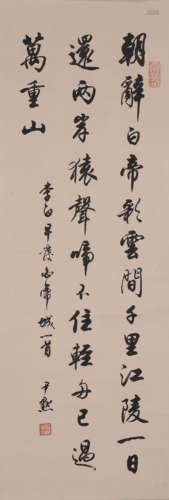 朝辭白帝彩雲間千里江陵一日
還兩岸猿聲啼不住輕舟已過
萬重山
李白早發白帝城一首 尹默